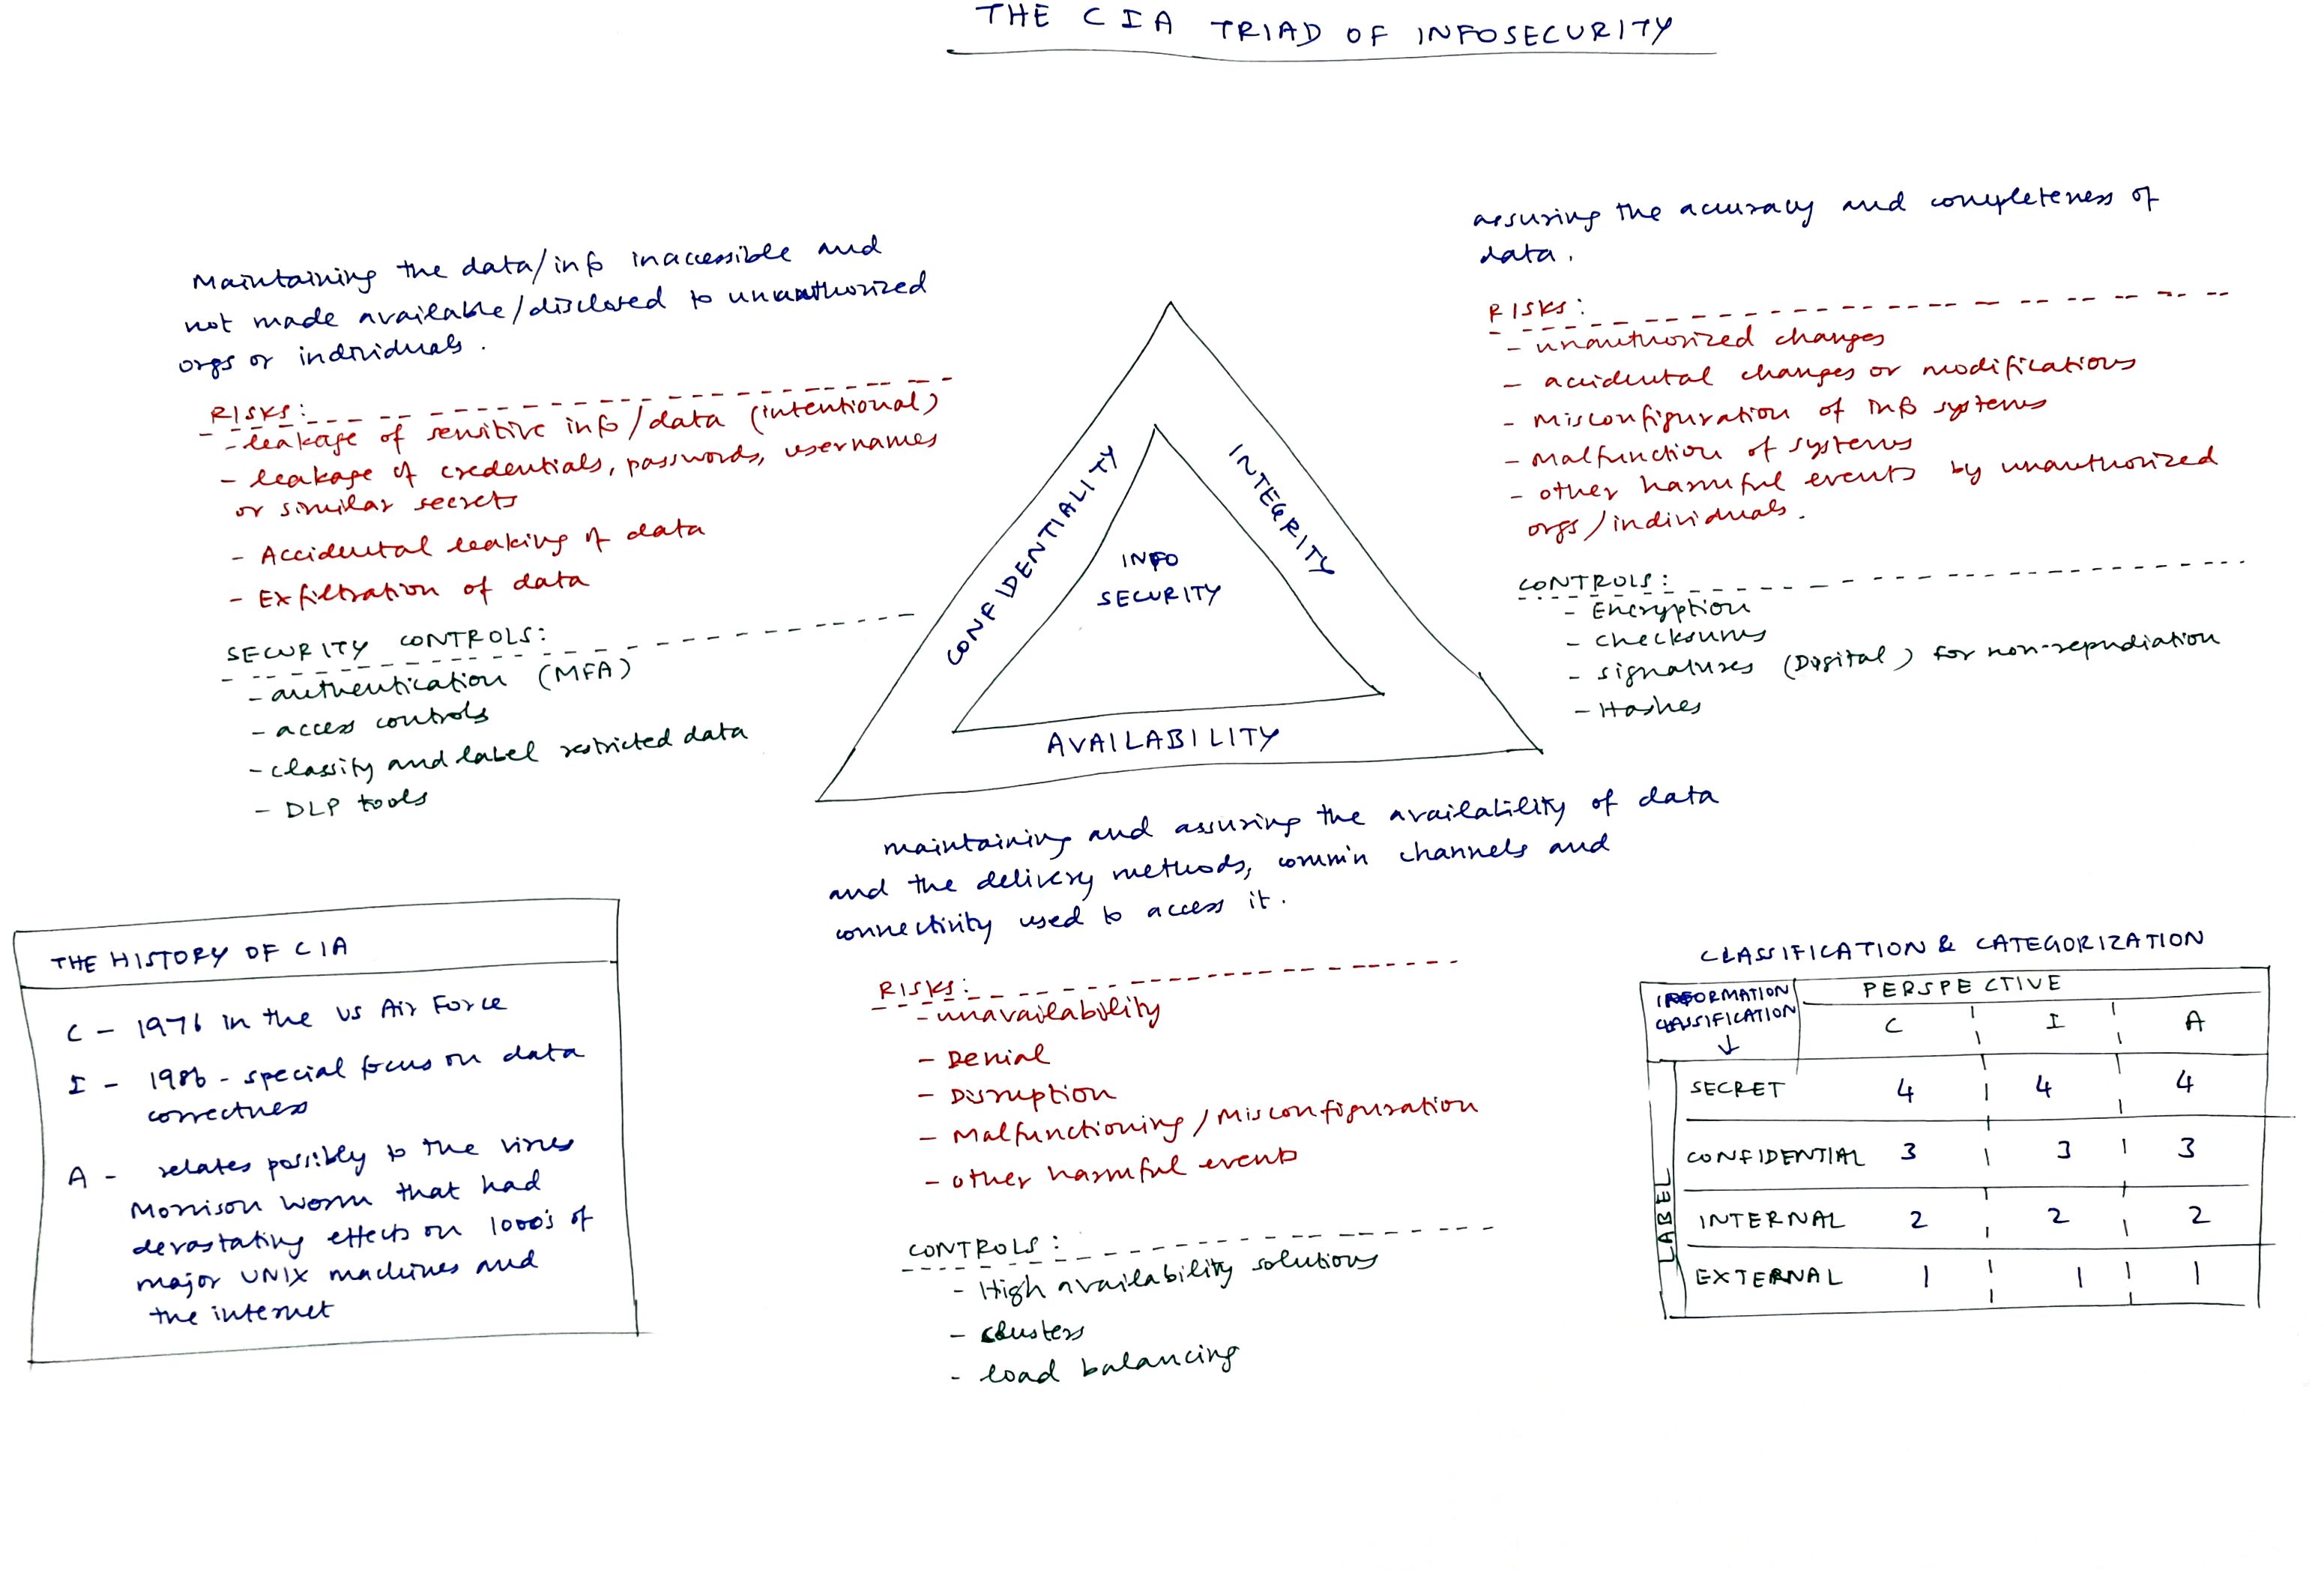 THE CIA TRIAD OF INFOSECURITY
Maintaining the data/info inaccessible and
not made available/disclosed to unauthorized
orgs or individuals.
RISKS:
- leakage of sensitive info/data (intentional)
- leakage of credentials, passwords, usernames
or similar secrets
- Accidental leaking of data
- Exfiltration of data
SECURITY CONTROLS:
- authentication (MFA)
- access controls
- classify and label restricted data
- DLP tools
CONFIDENTIALITY
INTEGRITY
INFO
SECURITY
AVAILABILITY
assuring the accuracy and completeness of
data.
RISKS:
- unauthorized changes
- accidental changes or modifications
- Misconfiguration of info systems
- Malfunction of systems
- other harmful events by unauthorized
orgs/individuals.
CONTROLS:
- Encryption
- checksums
- signatures (Digital) for non-repudiation
- Hashes
maintaining and assuring the availability of data
and the delivery methods, comm'n channels and
connectivity used to access it.
RISKS:
- unavailability
- Denial
- Disruption
- Malfunctioning/Misconfiguration
- other harmful events
CONTROLS:
- High availability solutions
- clusters
- load balancing
THE HISTORY OF CIA
C - 1976 in the US Air Force
I - 1986 - special focus on data
correctness
A - relates possibly to the virus
Morrison worm that had
devastating effects on 1000's of
major UNIX machines and
the internet
CLASSIFICATION & CATEGORIZATION
INFORMATION
CLASSIFICATION
PERSPECTIVE
C I A
LABEL
SECRET 4 4 4
CONFIDENTIAL 3 3 3
INTERNAL 2 2 2
EXTERNAL 1 1 1